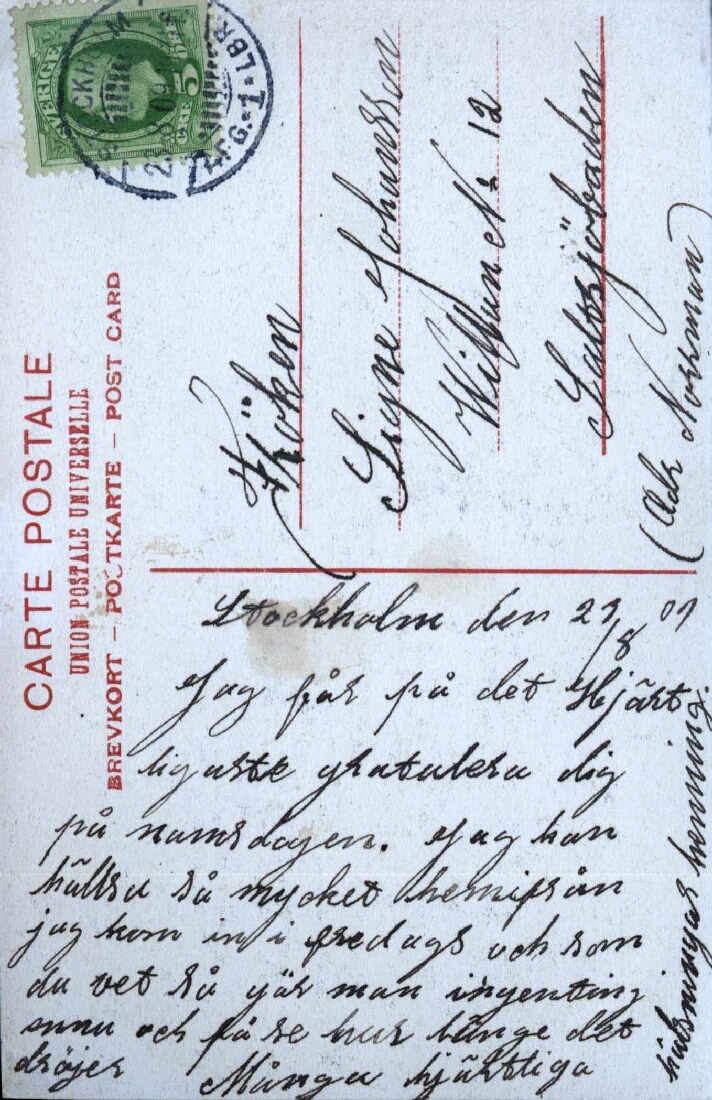 SVERIGE
5
ÖRE
STOCKHOLM
21.8.09
AFG.-1-LBR.
CARTE POSTALE
UNION POSTALE UNIVERSELLE
BREVKORT – POSTKARTE – POST CARD
Fröken
Signe Johansson
Saltsjöbaden
(Adr Norrman)
Stockholm den 21/8 09
Jag får på det Hjärt
ligaste gratulera dig
på namsdagen. Jag kan
hällsa så mycket hemifrån
jag kom in i fredags och som
du vet så gär man ingenting
ennu och få se hur länge det
dröjer Många hjärtliga
hälsningar henning.